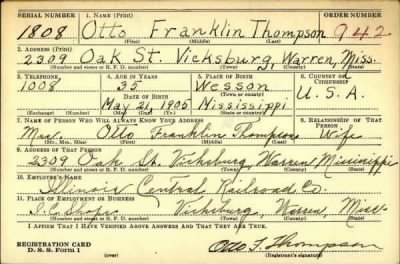 SERIAL NUMBER 1. NAME (Print) ORDER NUMBER
1808 Otto Franklin Thompson 942
(First) (Middle) (Last)
2. ADDRESS (Print)
2309 Oak St. Vicksburg, Warren, Miss.
(Number and street or R. F. D. number) (Town) (County) (State)
3. TELEPHONE 4. AGE IN YEARS 5. PLACE OF BIRTH 6. COUNTRY OF CITIZENSHIP
1008 35 Wesson U.S.A.
DATE OF BIRTH (Town or county)
May 21, 1905 Mississippi
(Exchange) (Number) (Mo.) (Day) (Yr.) (State or country)
7. NAME OF PERSON WHO WILL ALWAYS KNOW YOUR ADDRESS 8. RELATIONSHIP OF THAT PERSON
Mrs. Otto Franklin Thompson Wife
(Mr., Mrs., Miss) (First) (Middle) (Last)
9. ADDRESS OF THAT PERSON
2309 Oak St. Vicksburg, Warren Mississippi
(Number and street or R. F. D. number) (Town) (County) (State)
10. EMPLOYER'S NAME
Illinois Central Railroad Co.
11. PLACE OF EMPLOYMENT OR BUSINESS
I.C. Shops Vicksburg, Warren, Miss.
(Number and street or R. F. D. number) (Town) (County) (State)
I AFFIRM THAT I HAVE VERIFIED ABOVE ANSWERS AND THAT THEY ARE TRUE.
REGISTRATION CARD
D. S. S. Form 1 (over) Otto F. Thompson
(Registrant's signature)